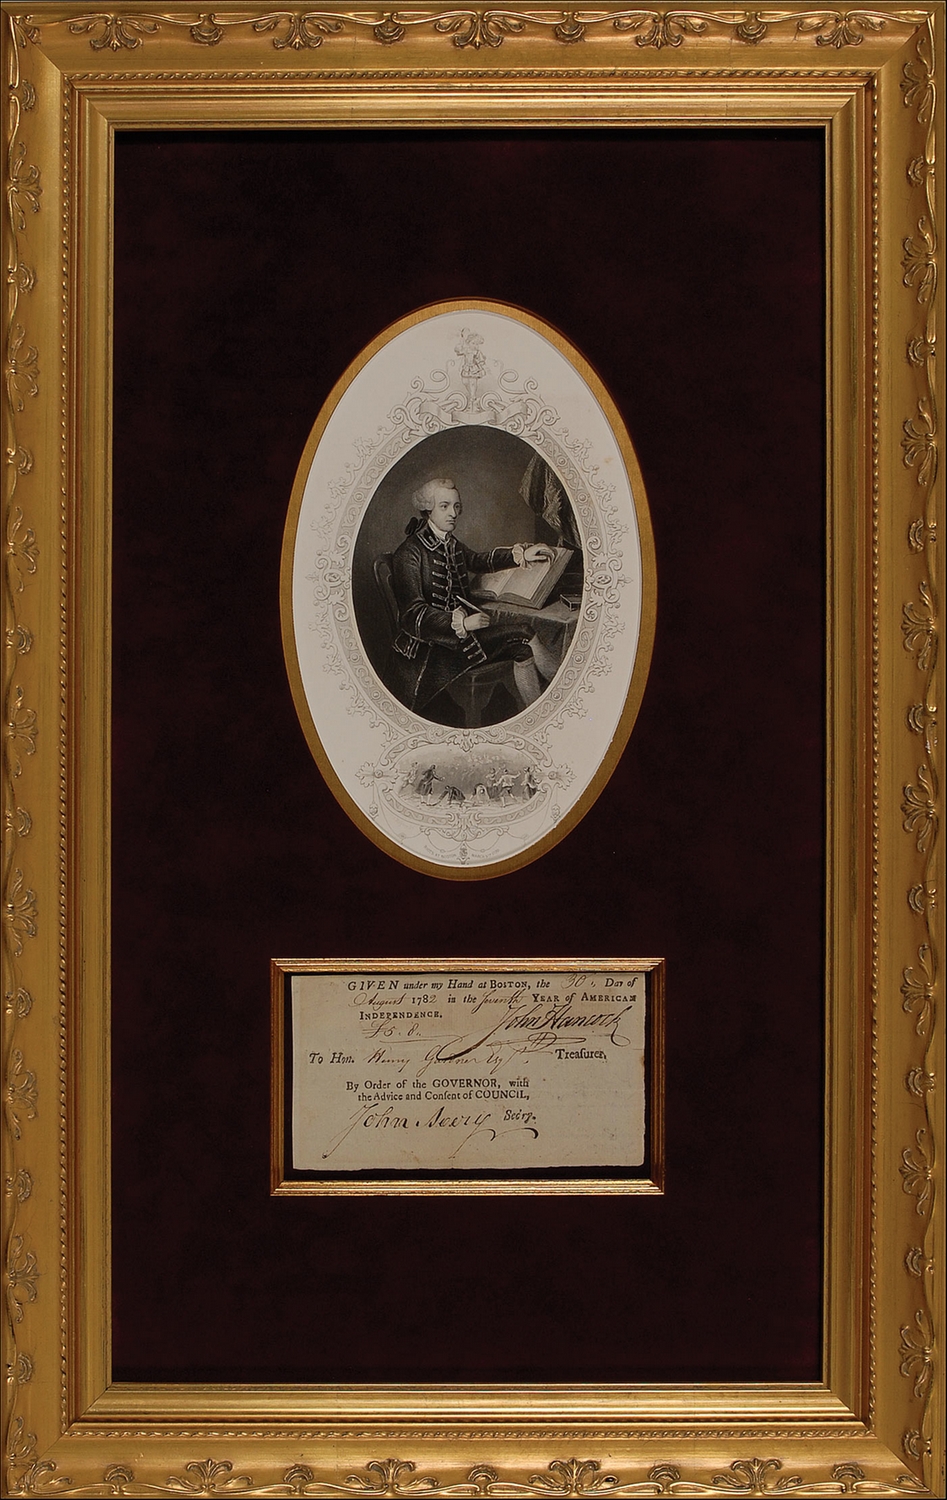 GIVEN under my Hand at BOSTON, the 30 Day of
August 1782 in the seventh YEAR of AMERICAN
INDEPENDENCE.
John Hancock
£5. 8.
To Hon. Henry Gardner Esqr. Treasurer,
By Order of the GOVERNOR, with
the Advice and Consent of COUNCIL,
John Avery Secry.